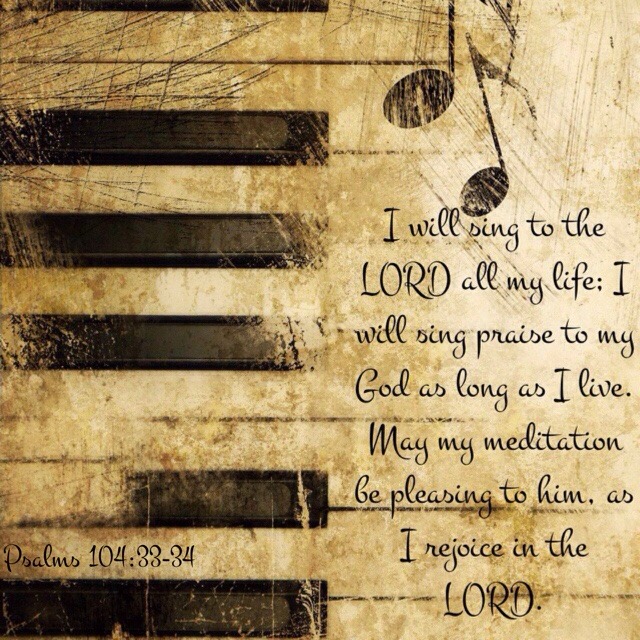 I will sing to the
LORD all my life; I
will sing praise to my
God as long as I live.
May my meditation
be pleasing to him, as
I rejoice in the
LORD.
Psalms 104:33-34